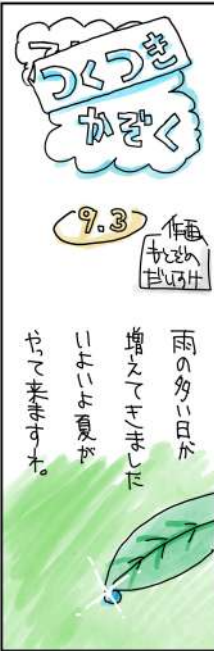 つくつき
かぞく
9.3
作画
雨の多い日が
増えてきました
いよいよ夏が
やって来ますネ。